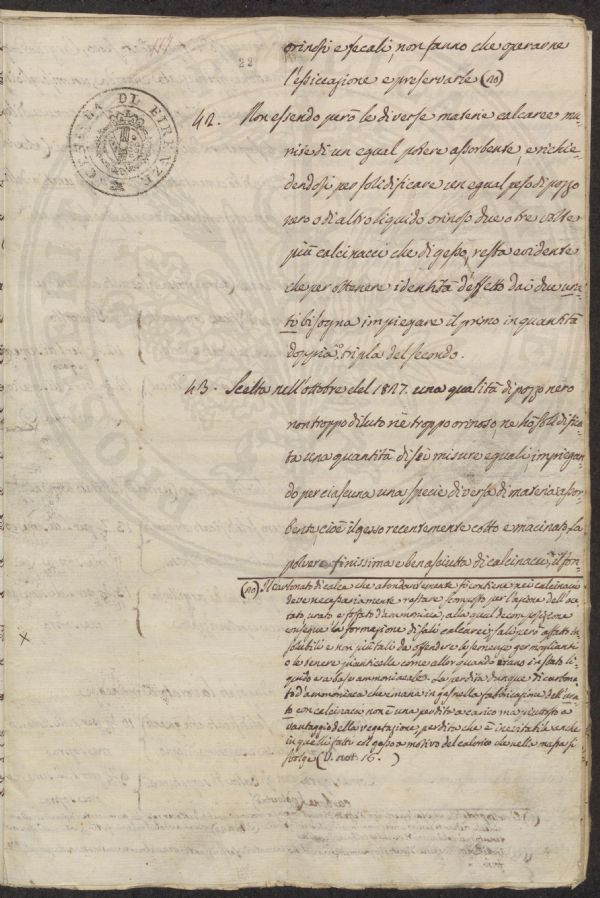 22
orinosi e fecali, non fanno che operarne
l'essiccazione e preservarle (20)
ACCADEMIA DI FIRENZE
42. Non essendo però le diverse materie calcaree mu-
nite di un egual potere assorbente, e richie-
dendosi per solidificare un egual peso di pozzo
nero o di altro liquido orinoso due o tre volte
più calcinacci che di gesso, resta evidente
che per ottenere identità d'effetto dai due ura-
ti bisogna impiegare il primo in quantità
doppia, o tripla del secondo.
43. Scelta nell'ottobre del 1827. una qualità di pozzo nero
non troppo diluto nè troppo orinoso, ne hò solidifica-
ta una quantità di sei misure eguali, impiegan-
do per ciascuna una specie diversa di materia assor-
bente cioè il gesso recentemente cotto e macinato, la
polvere finissima e ben asciutta di calcinacci, il
(20) Il carbonato di calce che abondevolmente si contiene nei calcinacci
deve necessariamente restare scomposto per l'azione dell'ace-
tato, urato e fosfato d'ammoniaca, alla qual decomposizione
consegue la formazione di sali calcarei, sali però affatto in-
solubili e non più tali da offendere le semenze germoglianti
o le tenere pianticelle come allor quando erano in stato li-
quido e a base ammoniacale. La perdita dunque di carbona-
to d'ammoniaca che emana in gas nella fabbricazione dell'ura-
to con calcinacci non è una perdita a carico ma piuttosto a
vantaggio della vegetazione, perdita che è inevitabile anche
in quelli fatti col gesso a motivo del calorico che nella massa si
svolge (V. not. 16. )